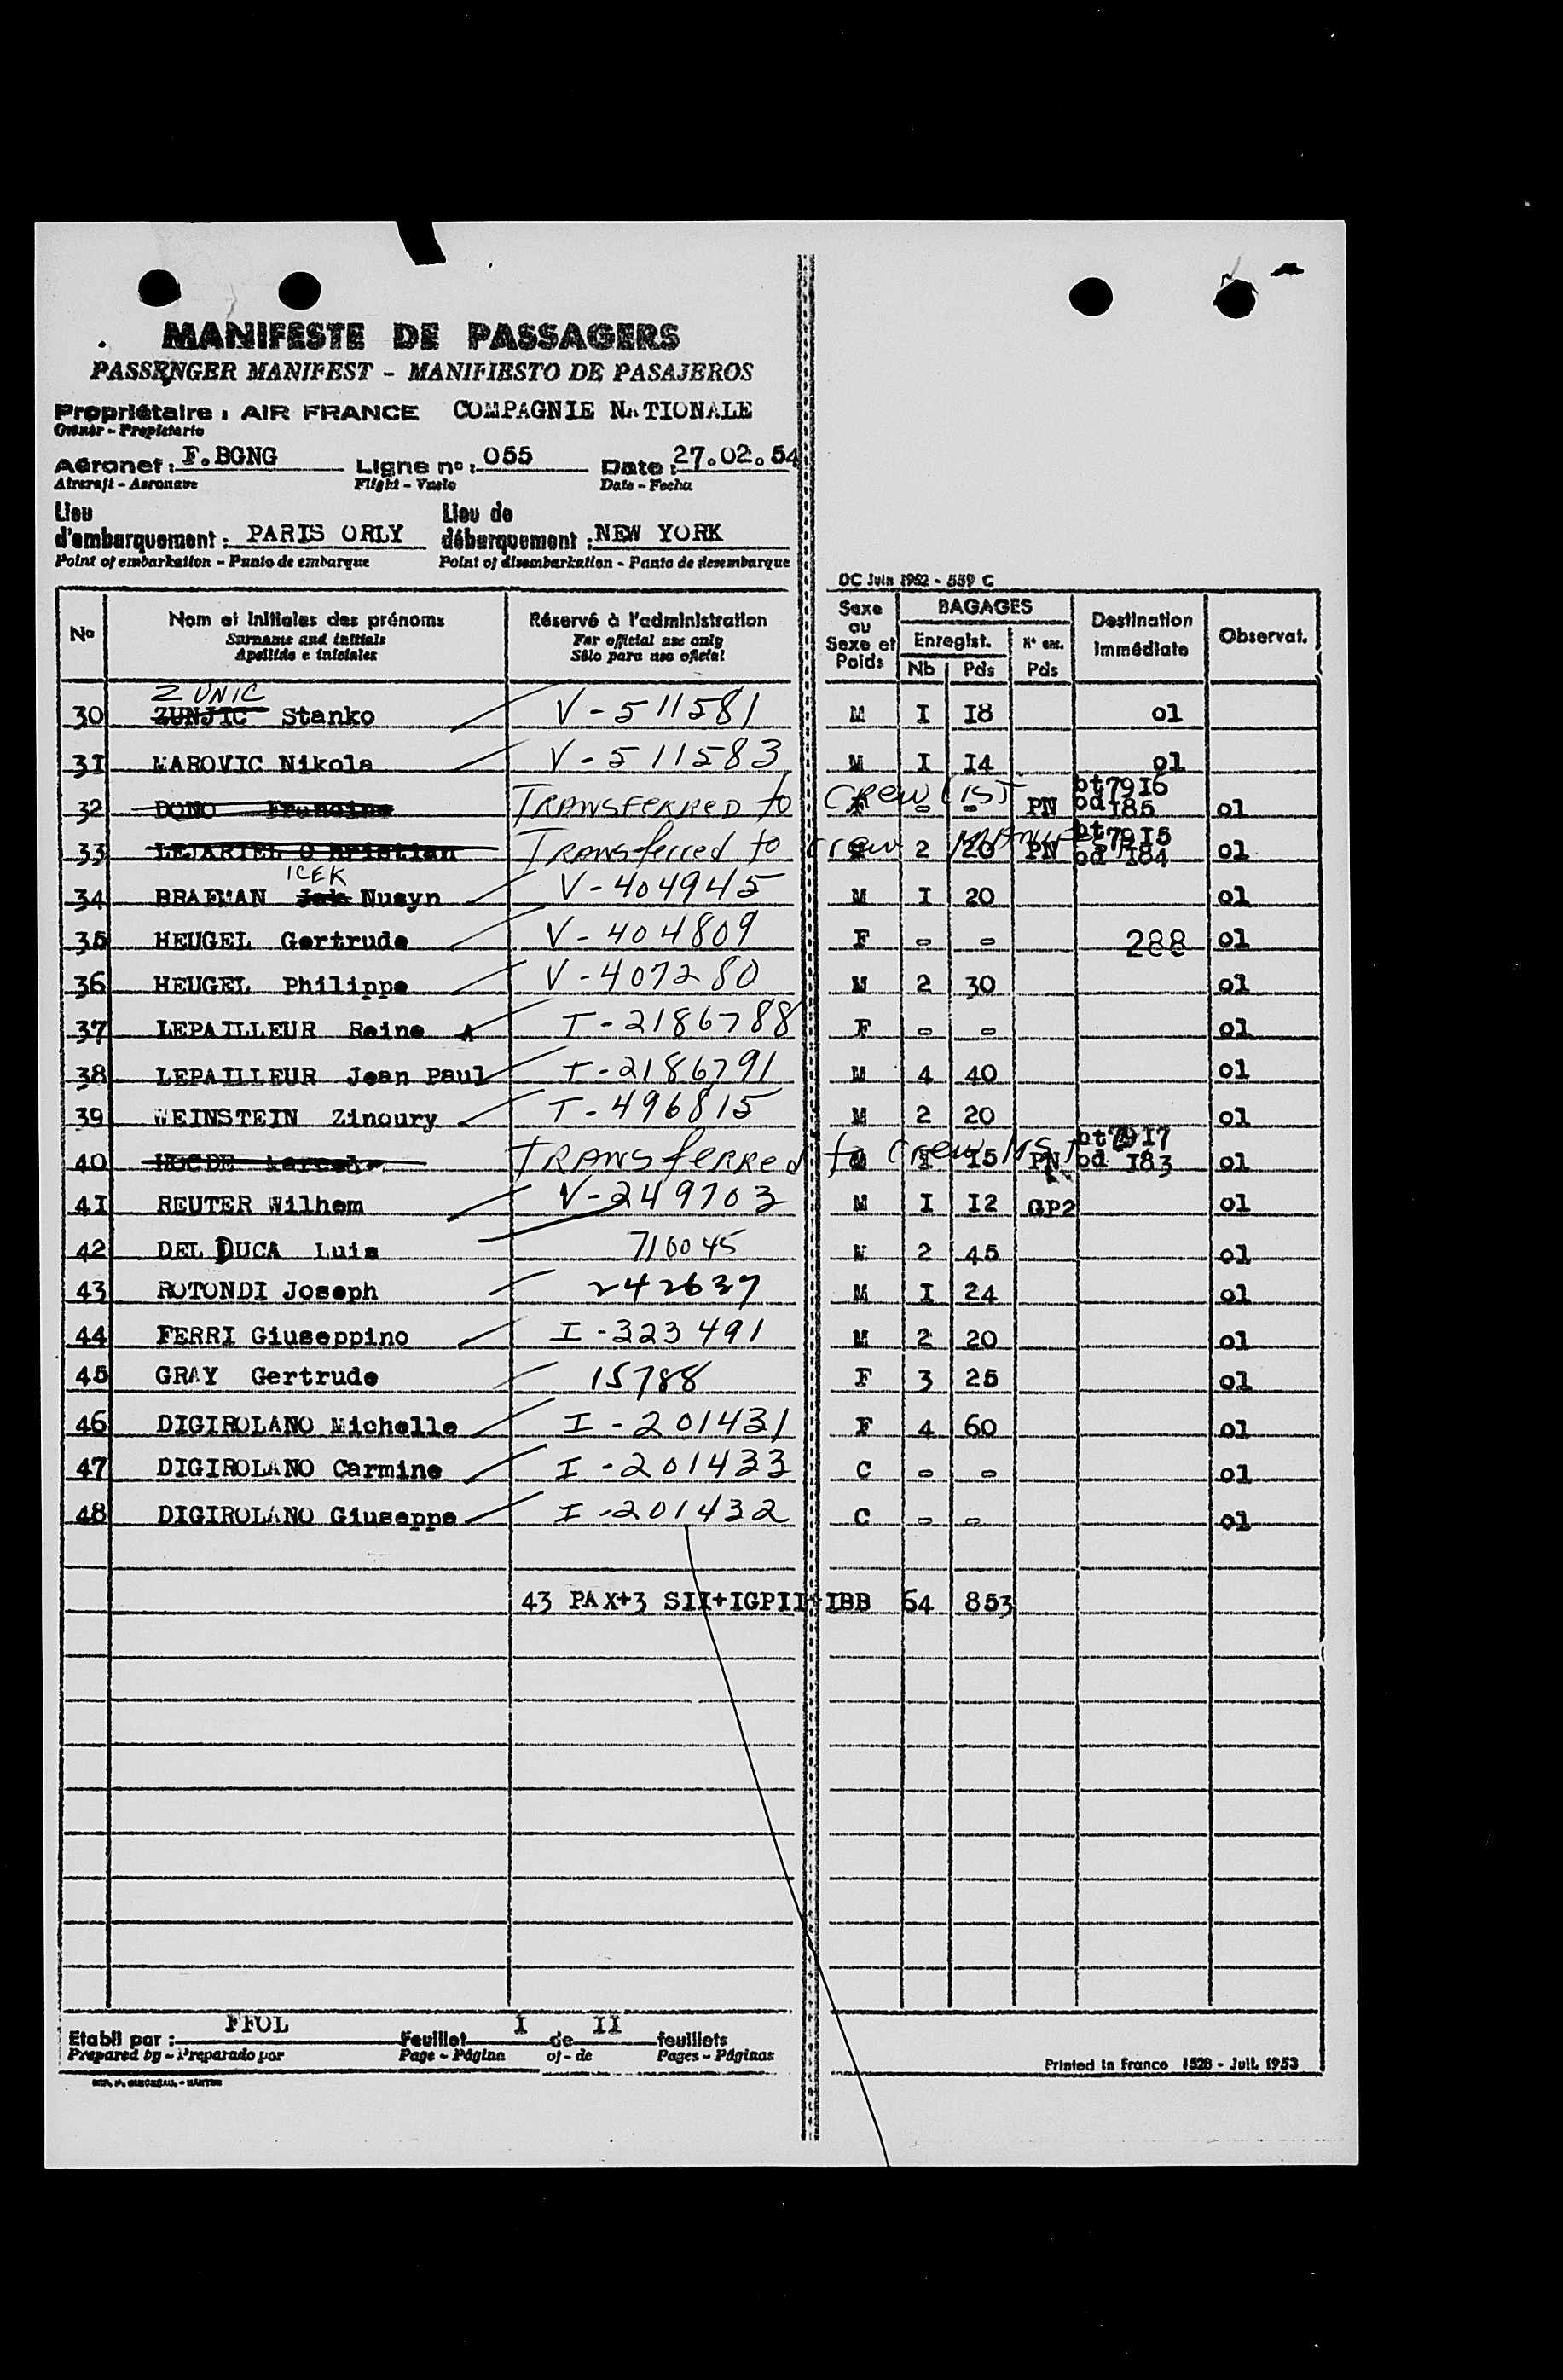 MANIFESTE DE PASSAGERS
PASSENGER MANIFEST - MANIFIESTO DE PASAJEROS
Propriétaire : AIR FRANCE COMPAGNIE NATIONALE
Owner - Propietario
Aéronef : F.BGNG Ligne no : 055 Date : 27.02.54
Aircraft - Aeronave Flight - Vuelo Date - Fecha
Lieu d'embarquement : PARIS ORLY Lieu de débarquement : NEW YORK
Point of embarkation - Punto de embarque Point of disembarkation - Punto de desembarque
DC Juin 1952 - 559 C
No Nom et initiales des prénoms Réservé à l'administration Sexe ou Sexe et Poids BAGAGES Destination immédiate Observat.
Surname and initials For official use only Enregist. Nb Pds Pds
Apellido e iniciales Sólo para uso oficial
ZUNIC
30 ZUNJIC Stanko V-511581 M I I8 ol
3I MAROVIC Nikola V-511583 M I I4 ol
32 DONO Francine TRANSFERRED to CREW LIST F - - PN bt79I6 bd I85 ol
33 LEJARIEL Christian TRANSferred to crew 2 20 PN bt79I5 bd I84 ol
ICEK
34 BRAFMAN Nusyn V-404945 M I 20 ol
35 HEUGEL Gertrude V-404809 F - - 288 ol
36 HEUGEL Philippe V-407280 M 2 30 ol
37 LEPAILLEUR Reine T-2186788 F - - ol
38 LEPAILLEUR Jean Paul T-2186791 M 4 40 ol
39 WEINSTEIN Zinoury T-496815 M 2 20 ol
40 TRANSferRed to Crew LIST I I5 PN bt79I7 bd I83 ol
4I REUTER Wilhem V-249703 M I I2 GP2 ol
42 DEL DUCA Luis 716045 M 2 45 ol
43 ROTONDI Joseph 242637 M I 24 ol
44 FERRI Giuseppino I-323491 M 2 20 ol
45 GRAY Gertrude 15788 F 3 25 ol
46 DIGIROLANO Michelle I-201431 F 4 60 ol
47 DIGIROLANO Carmine I-201433 C - - ol
48 DIGIROLANO Giuseppe I-201432 C - - ol
43 PAX+3 SII+IGPII+IBB 64 853
Etabli par : FFOL Feuillet I de II feuillets
Prepared by - Preparado por Page - Página of - de Pages - Páginas
Printed in France 1528 - Juil. 1953